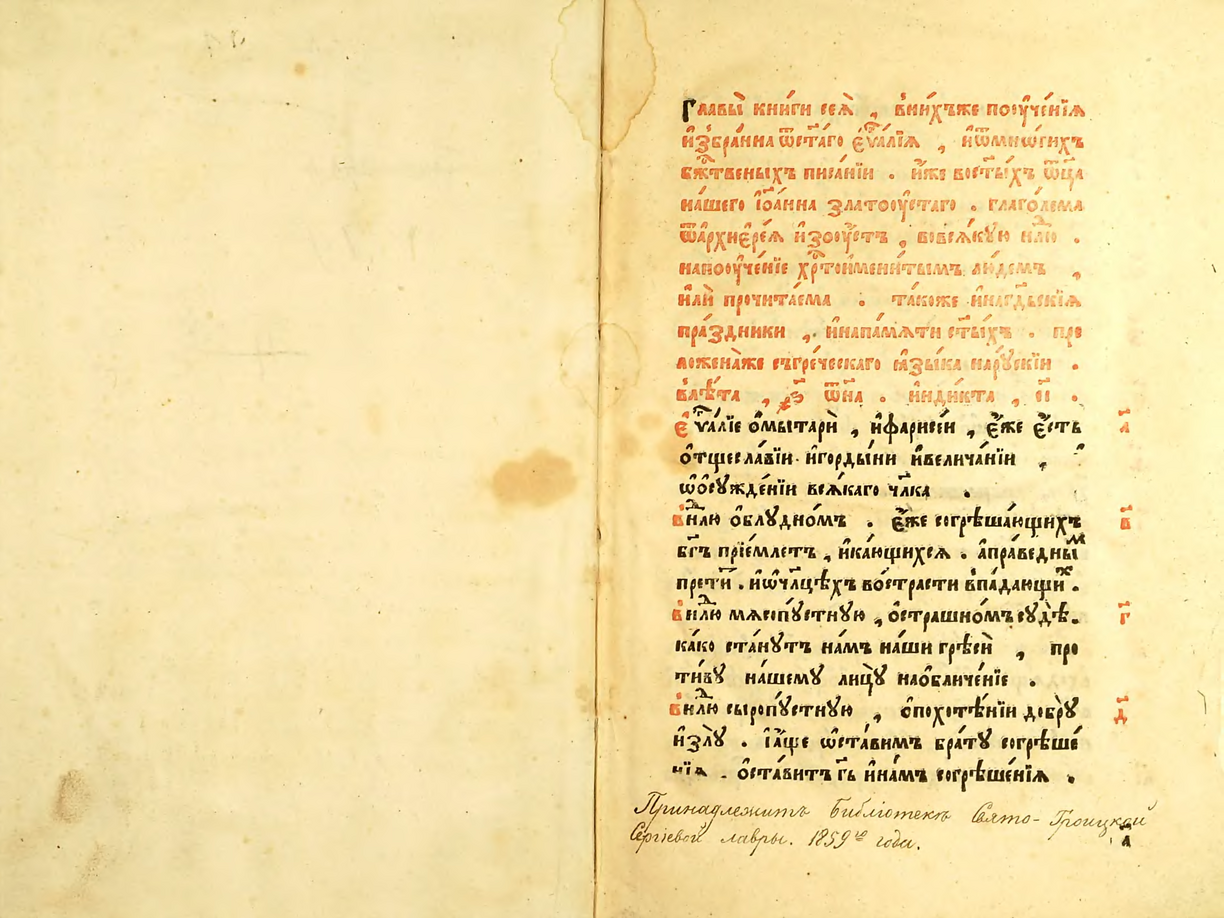 Главы̀ кни́ги сеѧ̀ , в̾ни́хъже поᲂуче́нїѧ
и҆збра́нна ѿст҃а́го є҆ѵⷢ҇а́лїѧ , и҆ѿмнѡ́гихъ
бж҃твеныхъ писа́нїи . и҆́же восты́хъ ѿц҃а
на́шего і҆ѡа́нна златоᲂу́стаго . глаго́лема
ѿа҆рхие҆ре́ѧ и҆зоᲂу́стъ , вовсѧ́кую нⷣлю .
напоᲂуче́нїе хрⷭ҇тоимени́тымъ лю́демъ ,
и҆лѝ прочита́ема . та́коже и҆нагⷭ҇дьскїѧ
пра́здники , и҆напа́мѧти ст҃ы́хъ . пре
ложена́же съгре́ческаго ꙗ҆зы́ка нару́скїи .
влѣ́та , ҂ѕ҃ ѿн҃а . и҆нди́кта , і҃і .
є҆ѵⷢ҇а́лїе ѡ҆мы́тарѝ , и҆фарисе́и , є҆́же є҆́сть
ѻ҆тщесла́вїи и҆горды́ни и҆велича́нїи ,
ѡ҆ѻ҆сужде́нїи всѧ́каго чл҃ка .
внⷣлю ѻ҆блу́дномъ . є҆́же согрѣша́ющихъ
бг҃ъ прїе́млетъ , и҆ка́ющихсѧ . а҆пра́ведныⷨ
прети́т . и҆ѡ҆чл҃цѣхъ во́страсти в̾па́дающиⷯ .
внⷣлю мѧсопу́стную , ѻ҆страшномъ сꙋдѣ̀ .
ка́ко ста́нутъ на́мъ на́ши грѣсѝ , про
ти́ву на́шему лицу̀ наѻ҆бличе́нїе .
внⷣлю сыропу́стную , ѻ҆похоте́нїи добрꙋ̀
и҆злꙋ̀ . і҆а҆́ще ѡ҆ста́вимъ бра́ту согрѣше́
нїѧ . ѻ҆ста́витъ гь҃ и҆на́мъ согрѣше́нїѧ .
а҃
в҃
г҃
д҃
Принадлежитъ Библіотекѣ Свято-Троицкой
Сергіевой лавры. 1859го года.
а